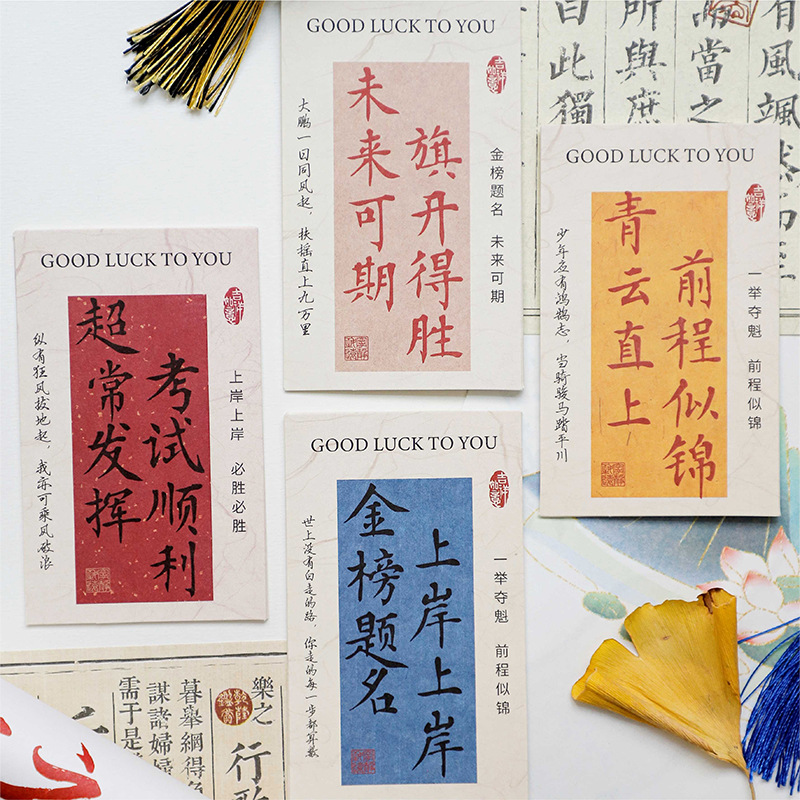 GOOD LUCK TO YOU
旗开得胜
未来可期
金榜题名 未来可期
大鹏一日同风起，扶摇直上九万里
吉祥如意
GOOD LUCK TO YOU
前程似锦
青云直上
一举夺魁 前程似锦
少年应有鸿鹄志，当骑骏马踏平川
吉祥如意
GOOD LUCK TO YOU
考试顺利
超常发挥
上岸上岸 必胜必胜
纵有狂风拔地起，我亦可乘风破浪
吉祥如意
GOOD LUCK TO YOU
上岸上岸
金榜题名
一举夺魁 前程似锦
世上没有白走的路，你走的每一步都算数
吉祥如意
有風颯
當之
所與庶
自此獨
樂之
行歌
暮舉綢得魚
謀諸婦婦
需于是